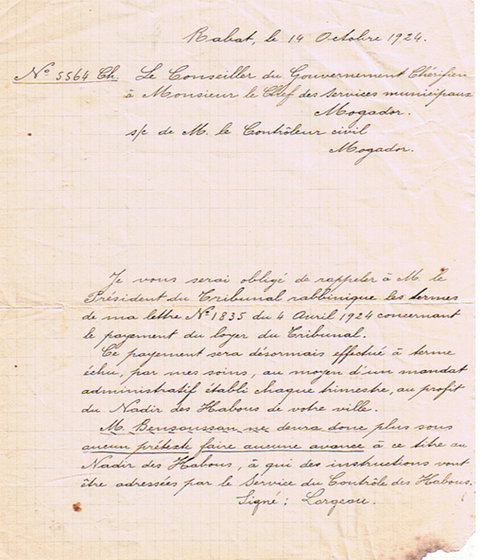 Rabat, le 14 Octobre 1924.
N° 5564 Ch. Le Conseiller du Gouvernement Chérifien
à Monsieur le Chef des services municipaux
Mogador.
s/c de M. le Contrôleur civil
Mogador.
Je vous serai obligé de rappeler à M. le
Président du Tribunal rabbinique les termes
de ma lettre N° 1835 du 4 Avril 1924 concernant
le payement du loyer du Tribunal.
Ce payement sera désormais effectué à terme
échu, par mes soins, au moyen d'un mandat
administratif établi chaque trimestre, au profit
du Nadir des Habous de votre ville.
M. Bensoussan ne devra donc plus sous
aucun prétexte faire aucune avance à ce titre au
Nadir des Habous, à qui des instructions vont
être adressées par le Service du Contrôle des Habous.
Signé: Largeau.